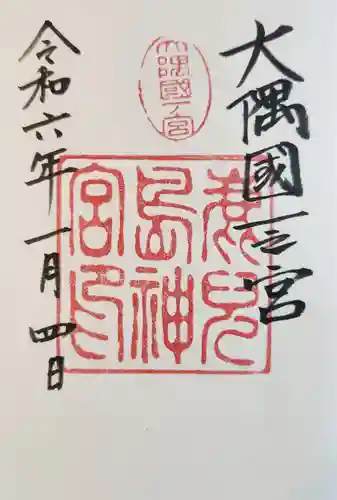 大隅國三之宮
大隅國三ノ宮
鹿兒
島神
宮印
令和六年一月四日